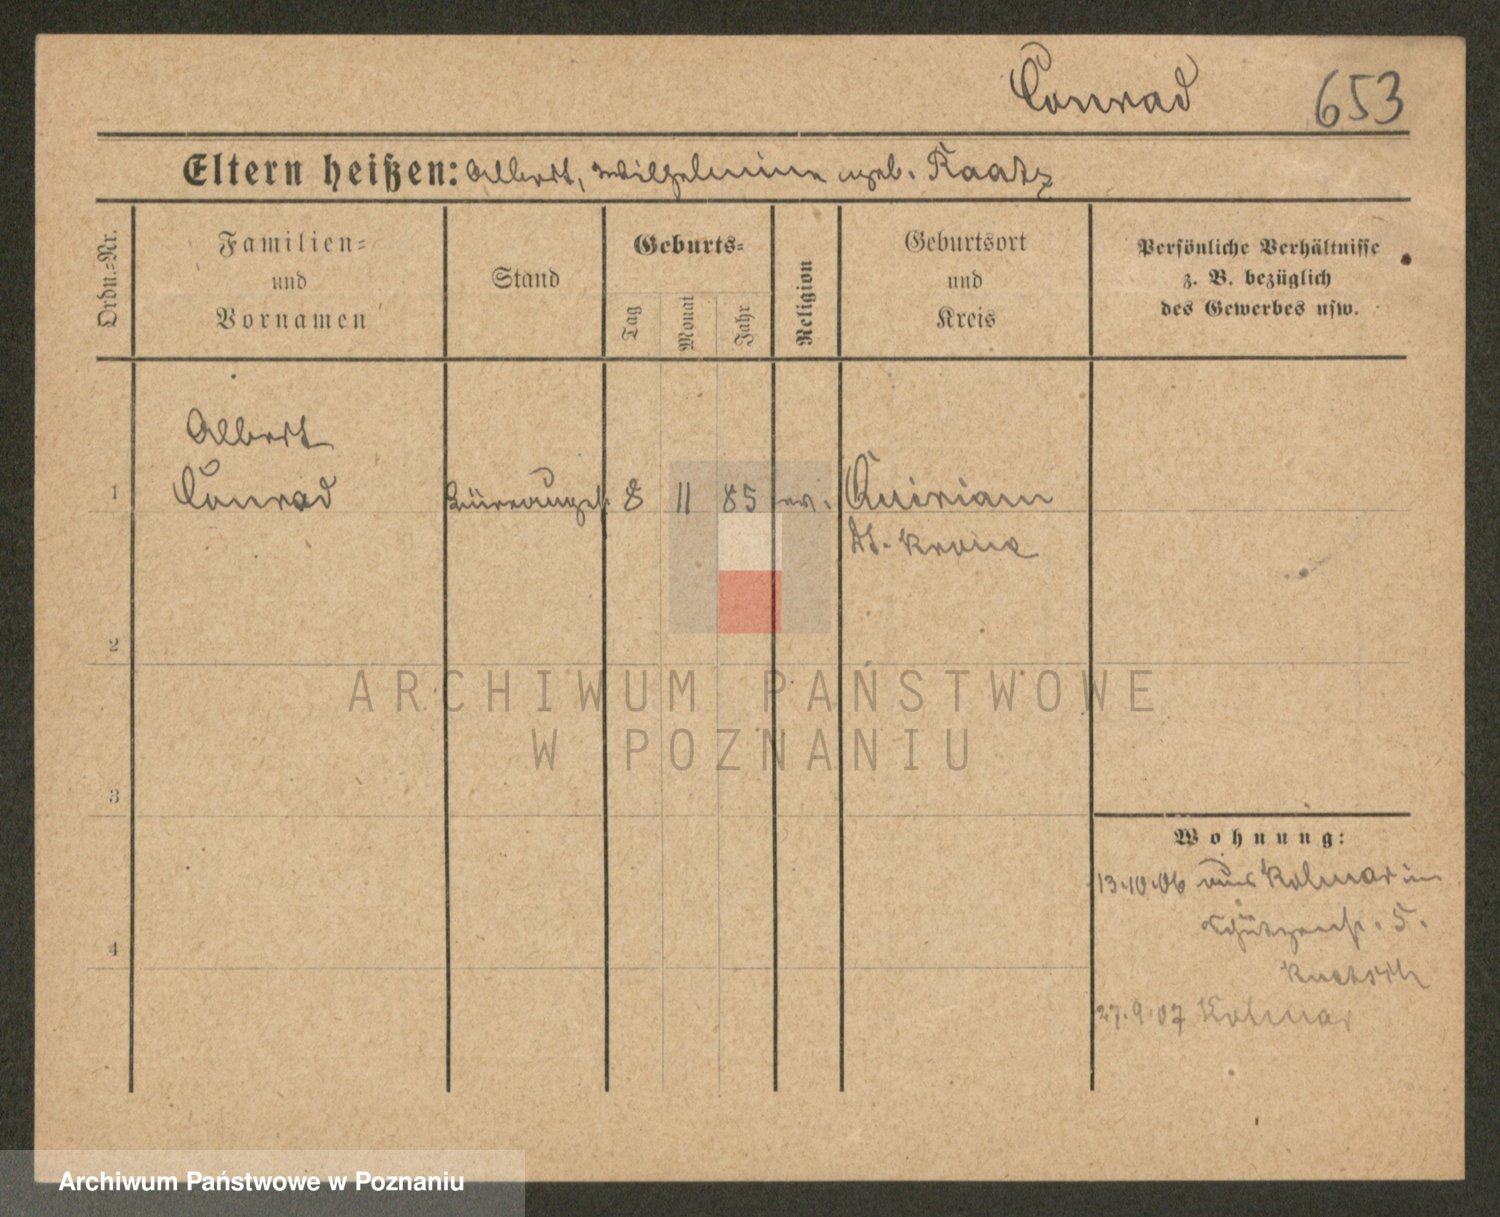 Conrad 653
Eltern heißen: Albert, Wilhelmine geb. Raatz
Ordn.-Nr.
Familien-
und
Vornamen
Stand
Geburts-
Tag
Monat
Jahr
Religion
Geburtsort
und
Kreis
Persönliche Verhältnisse
z. B. bezüglich
des Gewerbes usw.
Albert
1 Conrad Büreaugeh. 8 11 85 ev. Quiriam
Dt. Krone
2
3
4
Wohnung:
13.10.06 aus Kolmar in
Schützenstr. 5.
27.9.07 Kolmar
ARCHIWUM PAŃSTWOWE
W POZNANIU
Archiwum Państwowe w Poznaniu